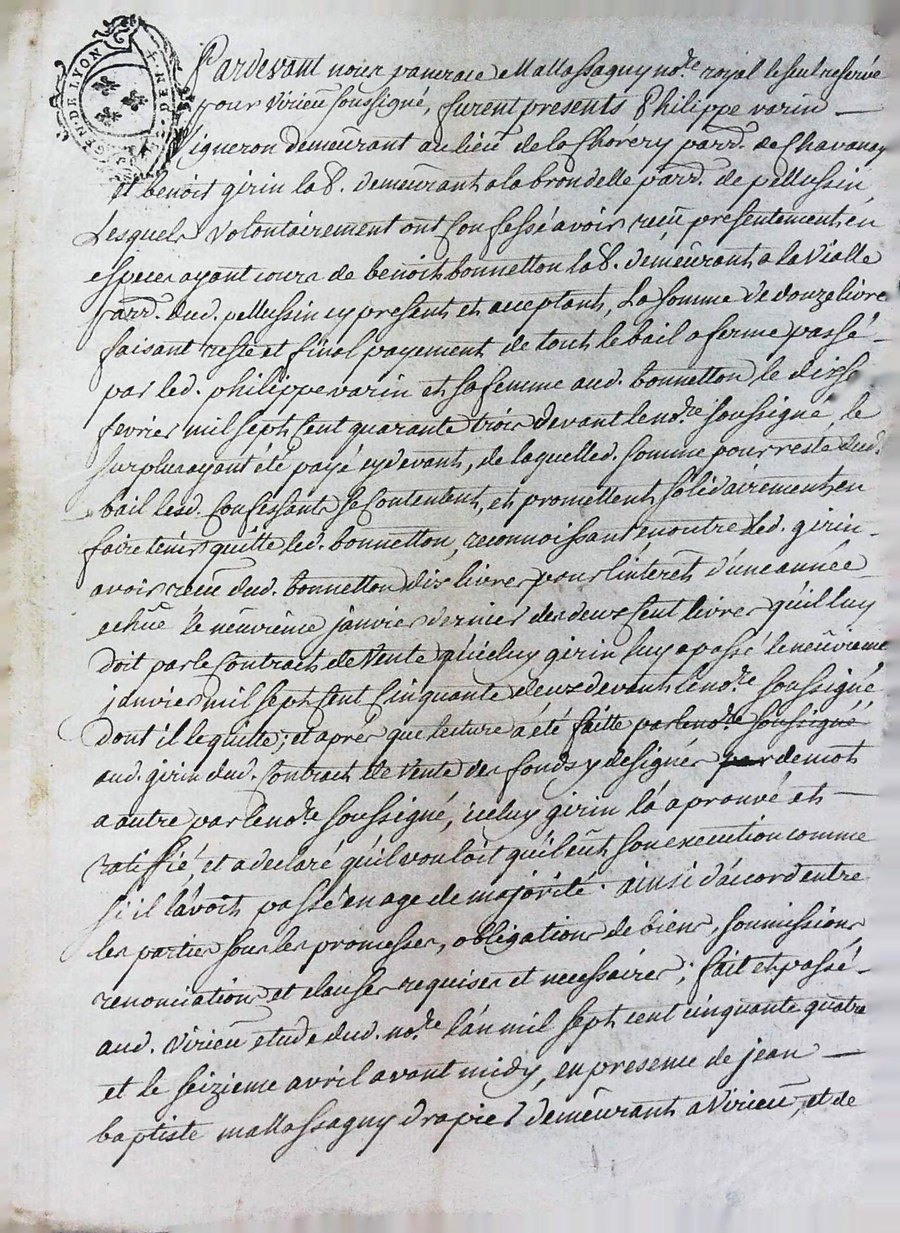 GEN. DE LYON
Pardevant noier pancrace Mallassagny no.re royal le seul reservé
pour Virieu soussigné, furent presents Philippe varin —
vigneron demeurant au lieu de la Chorery parr. de Chavanay
et benoit girin lab. demeurant a la brondelle parr. de pellussin,
Lesquels volontairement ont Confessé avoir reçu presentement en
especes ayant cours de benoit bonnetton lab. demeurant a la Vialle
parr. dud. pellussin cy present et acceptant, La somme de douze livre
faisant reste et final payement de tout le bail a ferme passé —
par led. philippe varin et sa femme aud. bonnetton le dixse
fevrier mil sept Cent quarante trois devant le no.re soussigné, le
surplus ayant été payé cy devant, de laquelle d. somme pour reste dud.
bail lesd. Confessants se Contentent, et promettent solidairement en
faire tenir quitte led. bonnetton, reconnoissant en outre led. girin —
avoir reçu dud. bonnetton dix livres pour l'interêt d'une année —
echüe le neuvieme janvier dernier des deux Cent livres qu'il luy
doit par le Contract de Vente qu'iceluy girin luy a passé le neuvieme
janvier mil sept Cent Cinquante deux devant le no.re soussigné
Dont il le quitte; et aprés que lecture a été faitte par le no.re soussigné
aud. girin dud. Contract de Vente des fonds y designés par de mot
a autre par le no.re soussigné, iceluy girin l'a aprouvé et —
ratiffié, et a declaré qu'il vouloit qu'il eut son execution comme
si il l'avoit passé en age de majorité. ainsi d'acord entre
les parties sous les promesses, obligations de biens, soumissions,
renonciations et clauses requises et necessaires; fait et passé —
aud. Virieu etude dud. no.re l'an mil sept cent cinquante quatre
et le seizieme avril avant midy, en presence de jean —
baptiste mallassagny drapier demeurant a Virieu, et de